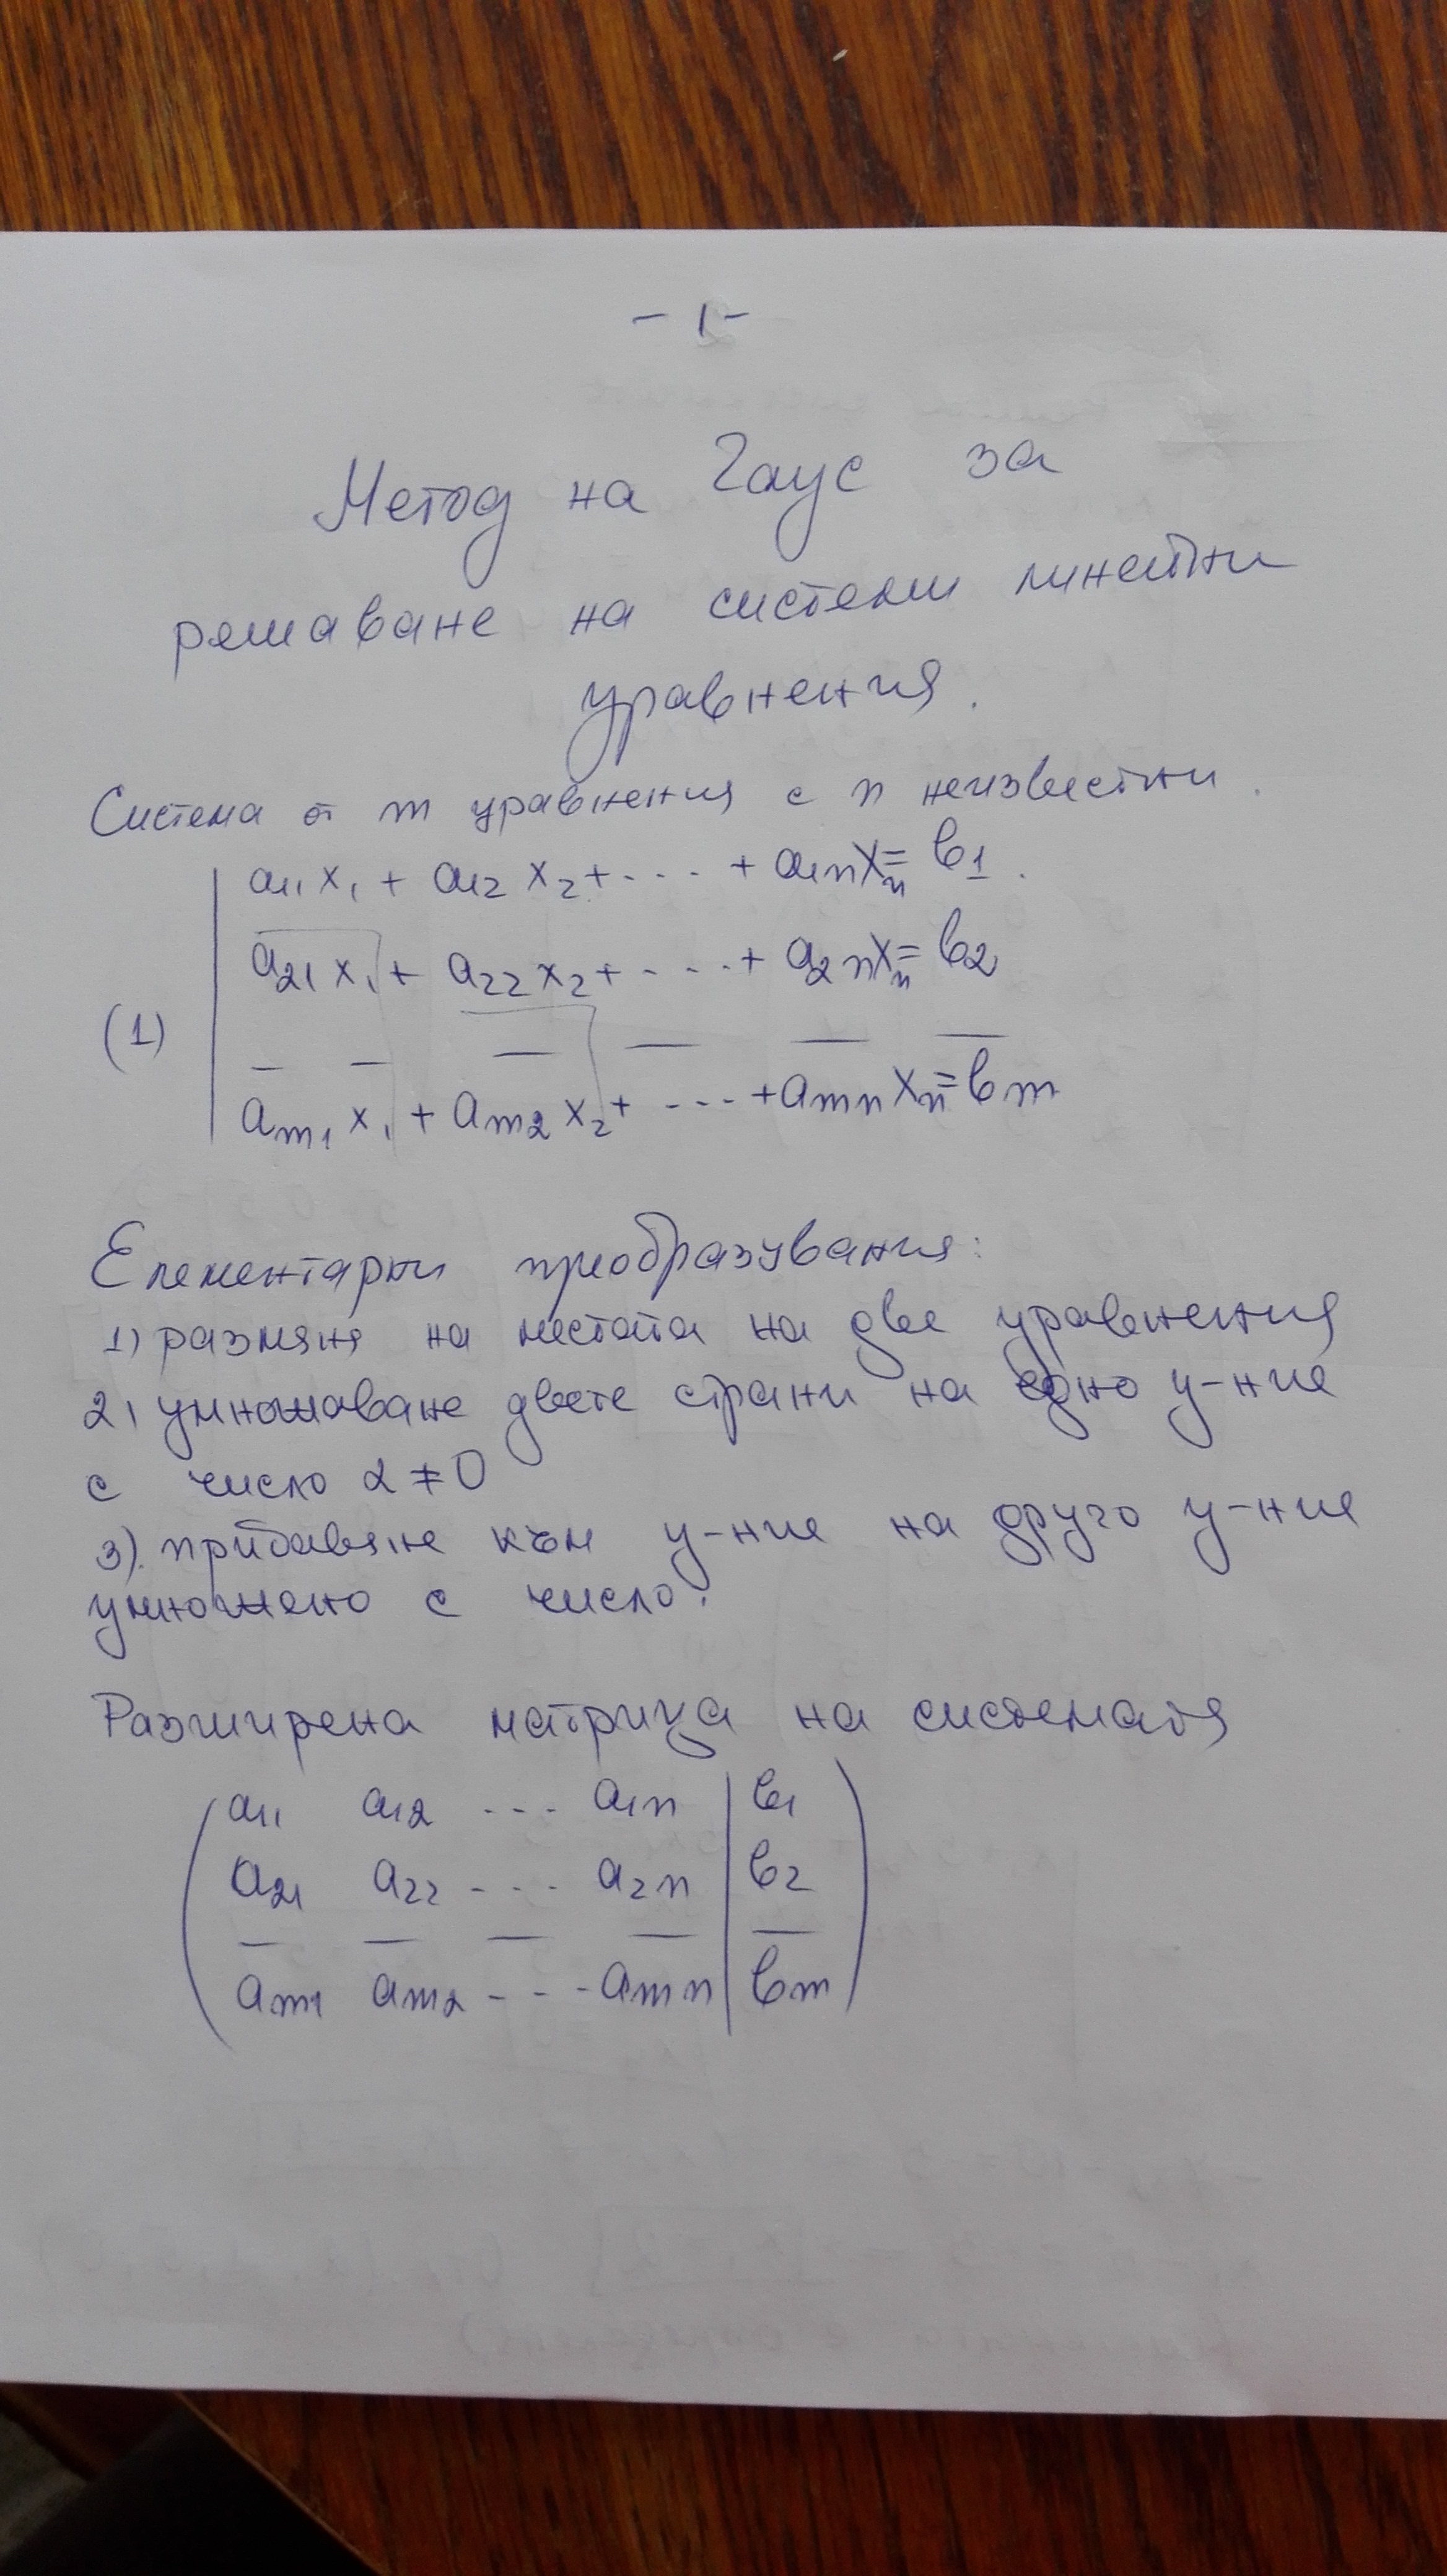 - 1 -
Метод на Гаус за
решаване на системи линейни
уравнения.
Система от m уравнения с n неизвестни.
a11 x1 + a12 x2 + . . . + a1n xn = b1
a21 x1 + a22 x2 + . . . + a2n xn = b2
(1)
— — — — — —
am1 x1 + am2 x2 + . . . + amn xn = bm
Елементарни преобразувания:
1) размяна на местата на две уравнения
2) умножаване двете страни на едно у-ние
с число α ≠ 0
3). прибавяне към у-ние на друго у-ние
умножено с число.
Разширена матрица на системата
a11 a12 . . . a1n | b1
a21 a22 . . . a2n | b2
— — — — | —
am1 am2 . . . amn | bm